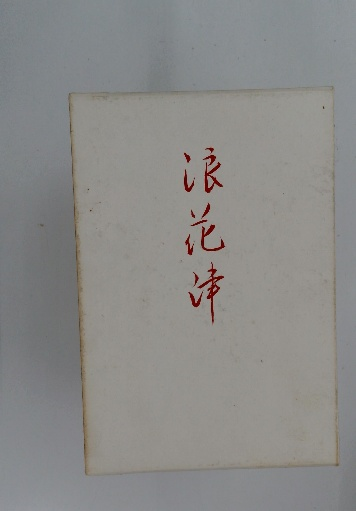 浪花津